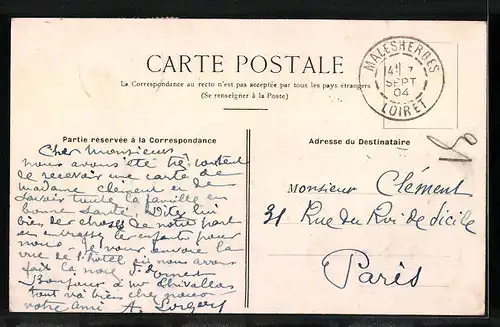 CARTE POSTALE
La Correspondance au recto n'est pas acceptée par tous les pays étrangers
(Se renseigner à la Poste)
MALESHERBES
4E 7
SEPT
04
LOIRET
Partie réservée à la Correspondance
Cher Monsieur
nous avons été très content
de recevoir une carte de
madame Clément et de
savoir toute la famille en
bonne santé. Dites lui
bien de choses de notre part
et embrasser les enfants pour
nous. Je vous envoie la
vue de l'hôtel où nous avons
fait la noce
Bonjour à mr
tout va bien chez nous
votre ami A.
Adresse du Destinataire
Monsieur Clément
31 Rue du Roi de Sicile
Paris